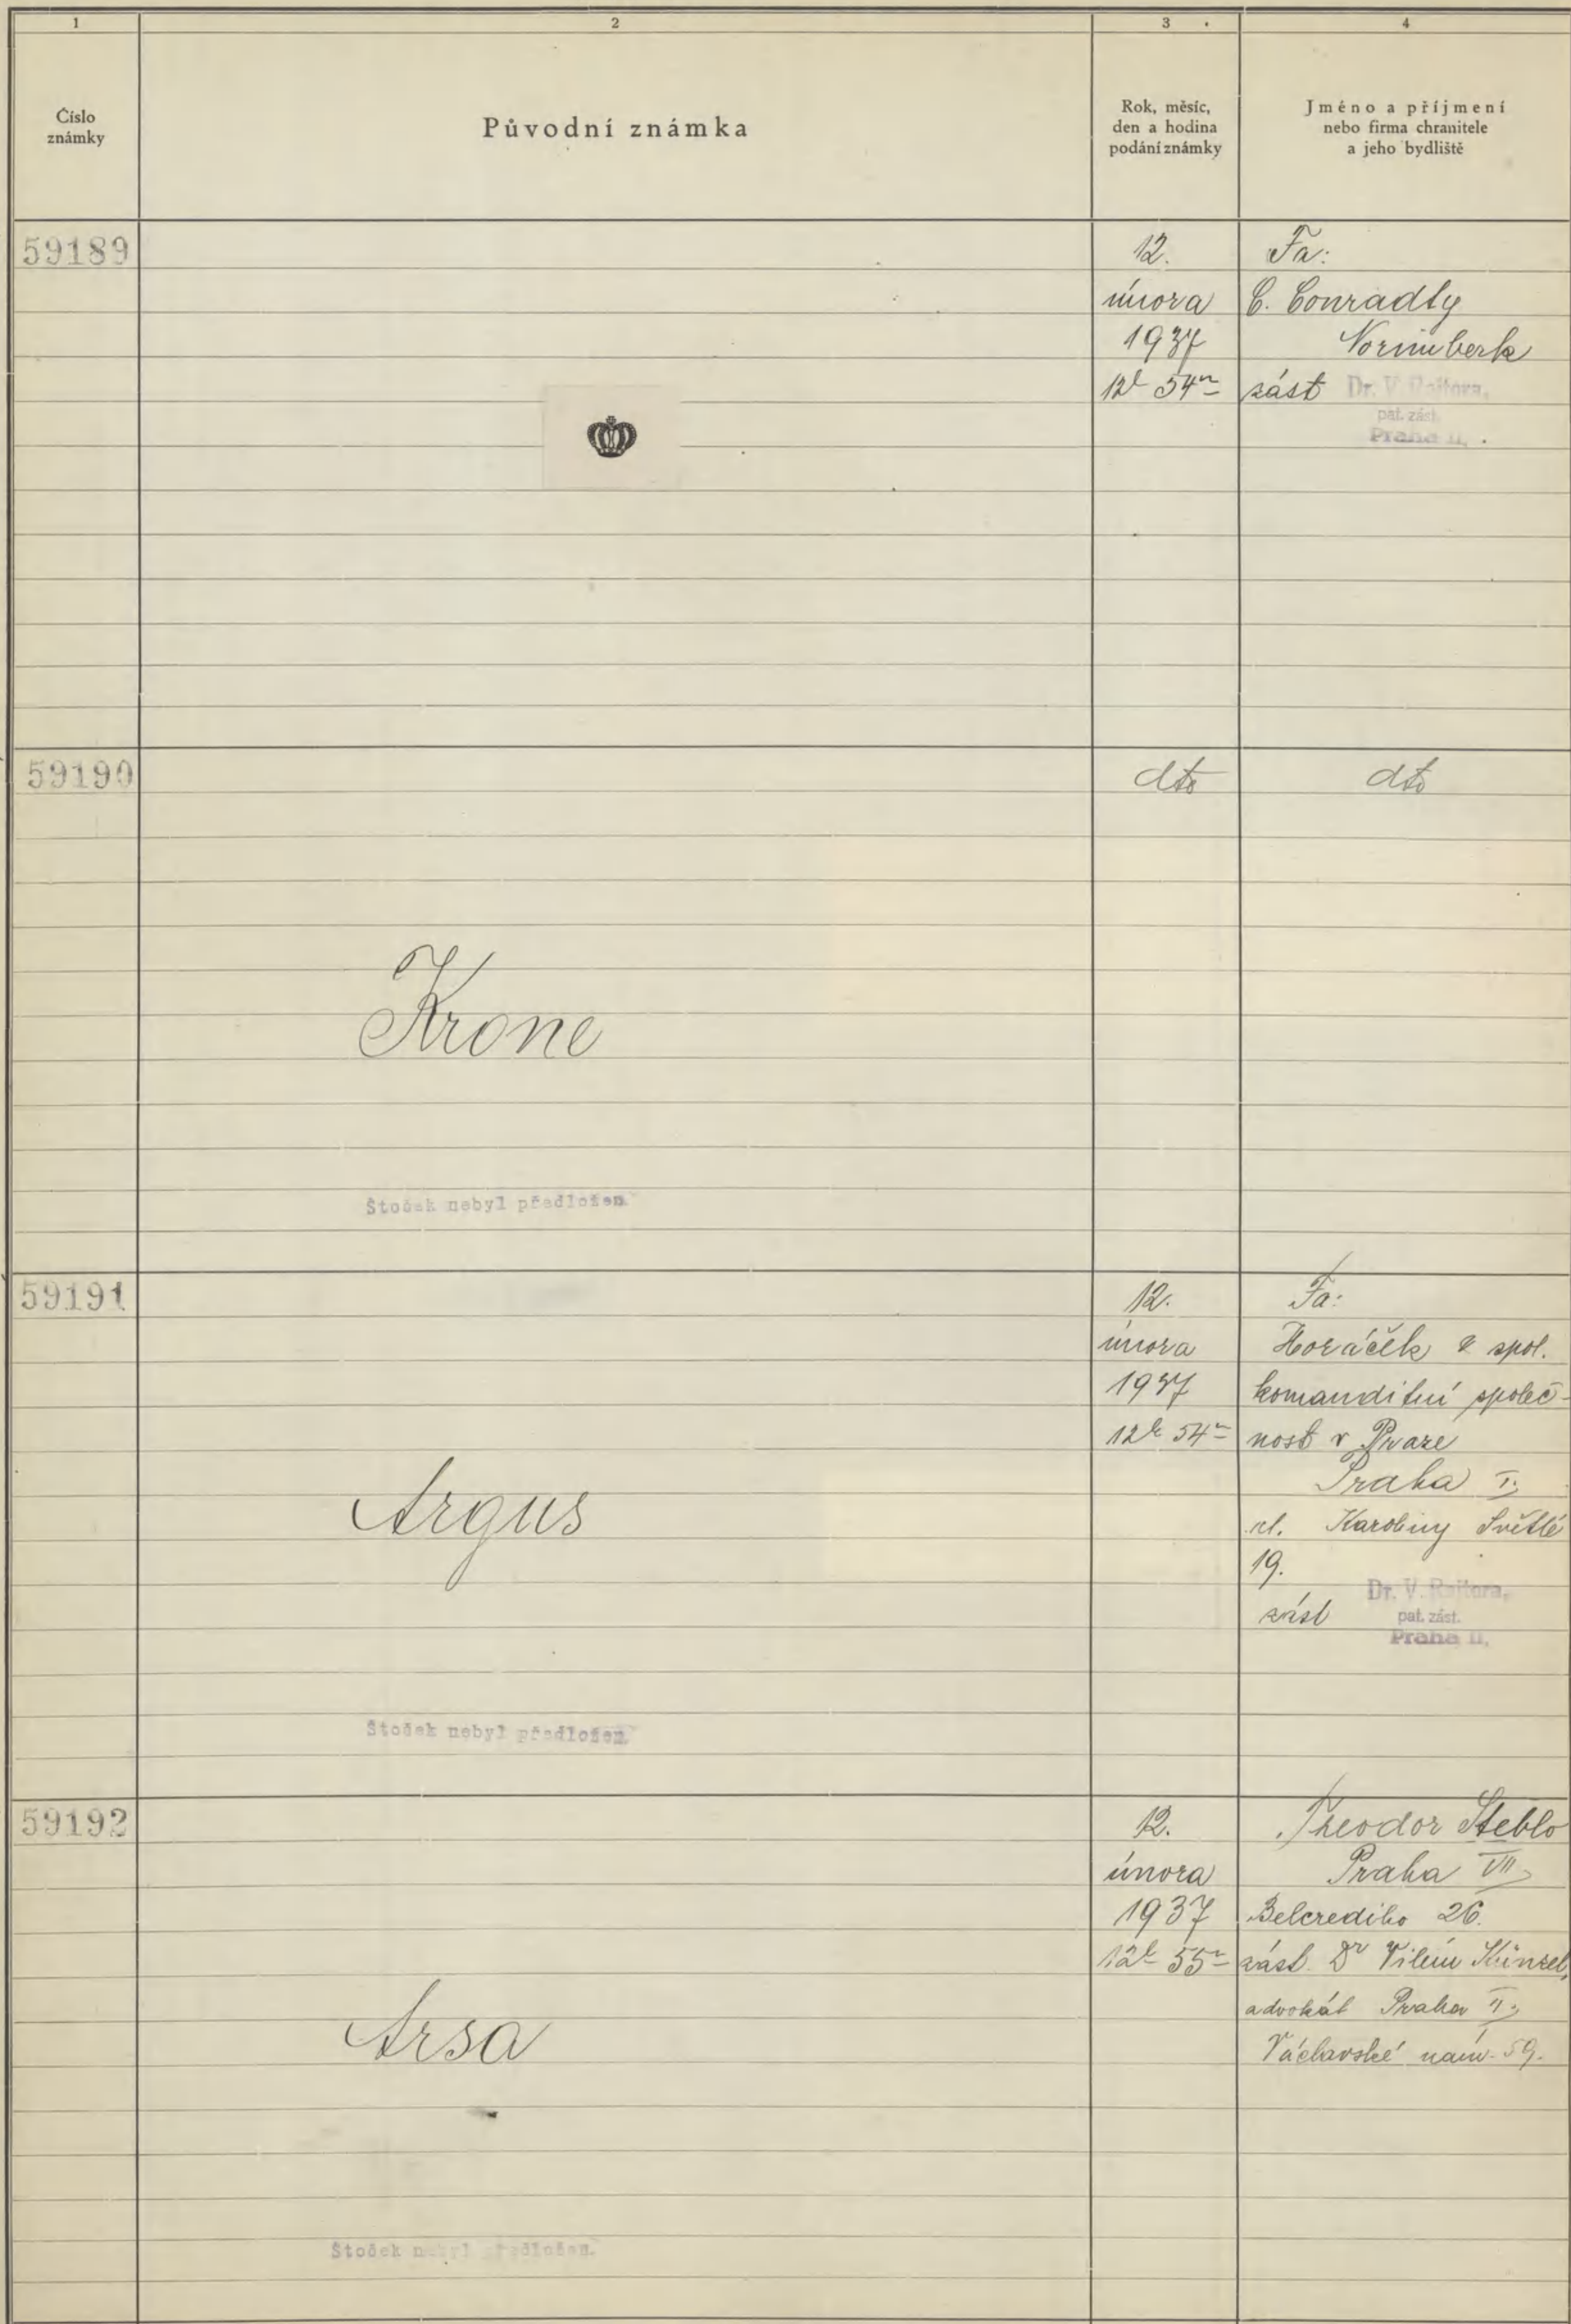 1
2
3
4
Číslo
známky
Původní známka
Rok, měsíc,
den a hodina
podání známky
Jméno a příjmení
nebo firma chranitele
a jeho bydliště
59189
12.
února
1937
12h 54m
Fa:
C. Conradty
Norimberk
zást Dr. V. Rejtora,
pat. zást.
Praha II.
59190
Krone
Štoček nebyl předložen.
dto
dto
59191
Argus
Štoček nebyl předložen.
12.
února
1937
12h 54m
Fa:
Horáček & spol.
komanditní společ-
nost v Praze
Praha I.
ul. Karoliny Světlé
19.
zást Dr. V. Rejtora,
pat. zást.
Praha II.
59192
Arsa
Štoček nebyl předložen.
12.
února
1937
12h 55m
Theodor Steblo
Praha VII
Belcrediho 26.
zást. Dr Vilém Künzel,
advokát Praha II.
Václavské nám. 59.